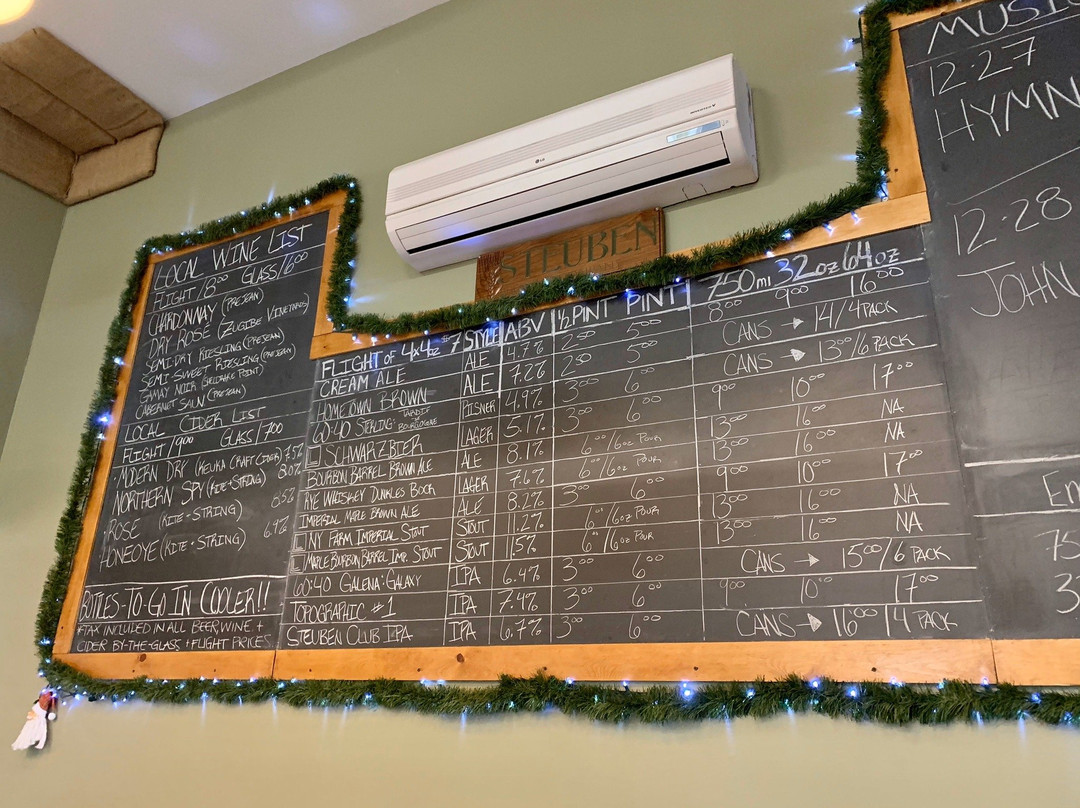 LOCAL WINE LIST
FLIGHT/12.00 GLASS/6.00
CHARDONNAY (PREJEAN)
DRY ROSÉ (ZUGIBE VINEYARDS)
SEMI-DRY RIESLING (PREJEAN)
SEMI-SWEET RIESLING (PREJEAN)
GAMAY NOIR (SHELDRAKE POINT)
CABERNET SAUV (PREJEAN)
LOCAL CIDER LIST
FLIGHT/9.00 GLASS/7.00
MODERN DRY (KEUKA CRAFT CIDER) 7.5%
NORTHERN SPY (KITE + STRING) 8.0%
ROSE (KITE + STRING) 6.5%
HONEOYE (KITE + STRING) 6.9%
BOTTLES-TO-GO IN COOLER!!
*TAX INCLUDED IN ALL BEER, WINE +
CIDER BY-THE-GLASS + FLIGHT PRICES
LG
STEUBEN
FLIGHT OF 4x4oz $7 STYLE ABV ½ PINT PINT 750ml 32oz 64oz
CREAM ALE ALE 4.7% 2.50 5.00 8.00 9.00 16.00
HOMETOWN BROWN ALE 7.2% 2.50 5.00 CANS → 14/4 PACK
60:40 STERLING: TARDIF DE BOURGOGNE PILSNER 4.9% 3.00 6.00 CANS → 13.00/6 PACK
SCHWARZBIER LAGER 5.1% 3.00 6.00 9.00 10.00 17.00
BOURBON BARREL BROWN ALE ALE 8.1% 6.00/6oz POUR 13.00 16.00 NA
RYE WHISKEY DUNKLES BOCK LAGER 7.6% 6.00/6oz POUR 13.00 16.00 NA
IMPERIAL MAPLE BROWN ALE ALE 8.2% 3.00 6.00 9.00 10.00 17.00
NY FARM IMPERIAL STOUT STOUT 11.2% 6.00/6oz POUR 13.00 16.00 NA
MAPLE BOURBON BARREL IMP. STOUT STOUT 11.5% 6.00/6oz POUR 13.00 16.00 NA
60:40 GALENA:GALAXY IPA 6.4% 3.00 6.00 CANS → 15.00/6 PACK
TOPOGRAPHIC #1 IPA 7.4% 3.00 6.00 9.00 10.00 17.00
STEUBEN CLUB IPA IPA 6.7% 3.00 6.00 CANS → 16.00/4 PACK
MUSIC
12.27
HYMN
12.28
JOHN